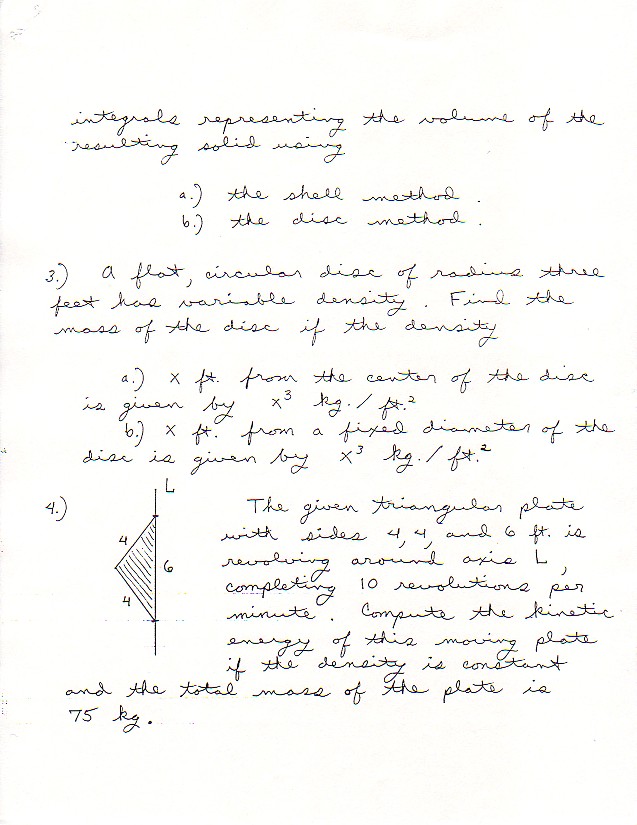 integrals representing the volume of the
resulting solid using
a.) the shell method.
b.) the disc method.
3.) A flat, circular disc of radius three
feet has variable density. Find the
mass of the disc if the density
a.) x ft. from the center of the disc
is given by x³ kg./ft.²
b.) x ft. from a fixed diameter of the
disc is given by x³ kg./ft.²
4.) L The given triangular plate
4 with sides 4, 4, and 6 ft. is
6 revolving around axis L,
4 completing 10 revolutions per
minute. Compute the kinetic
energy of this moving plate
if the density is constant
and the total mass of the plate is
75 kg.